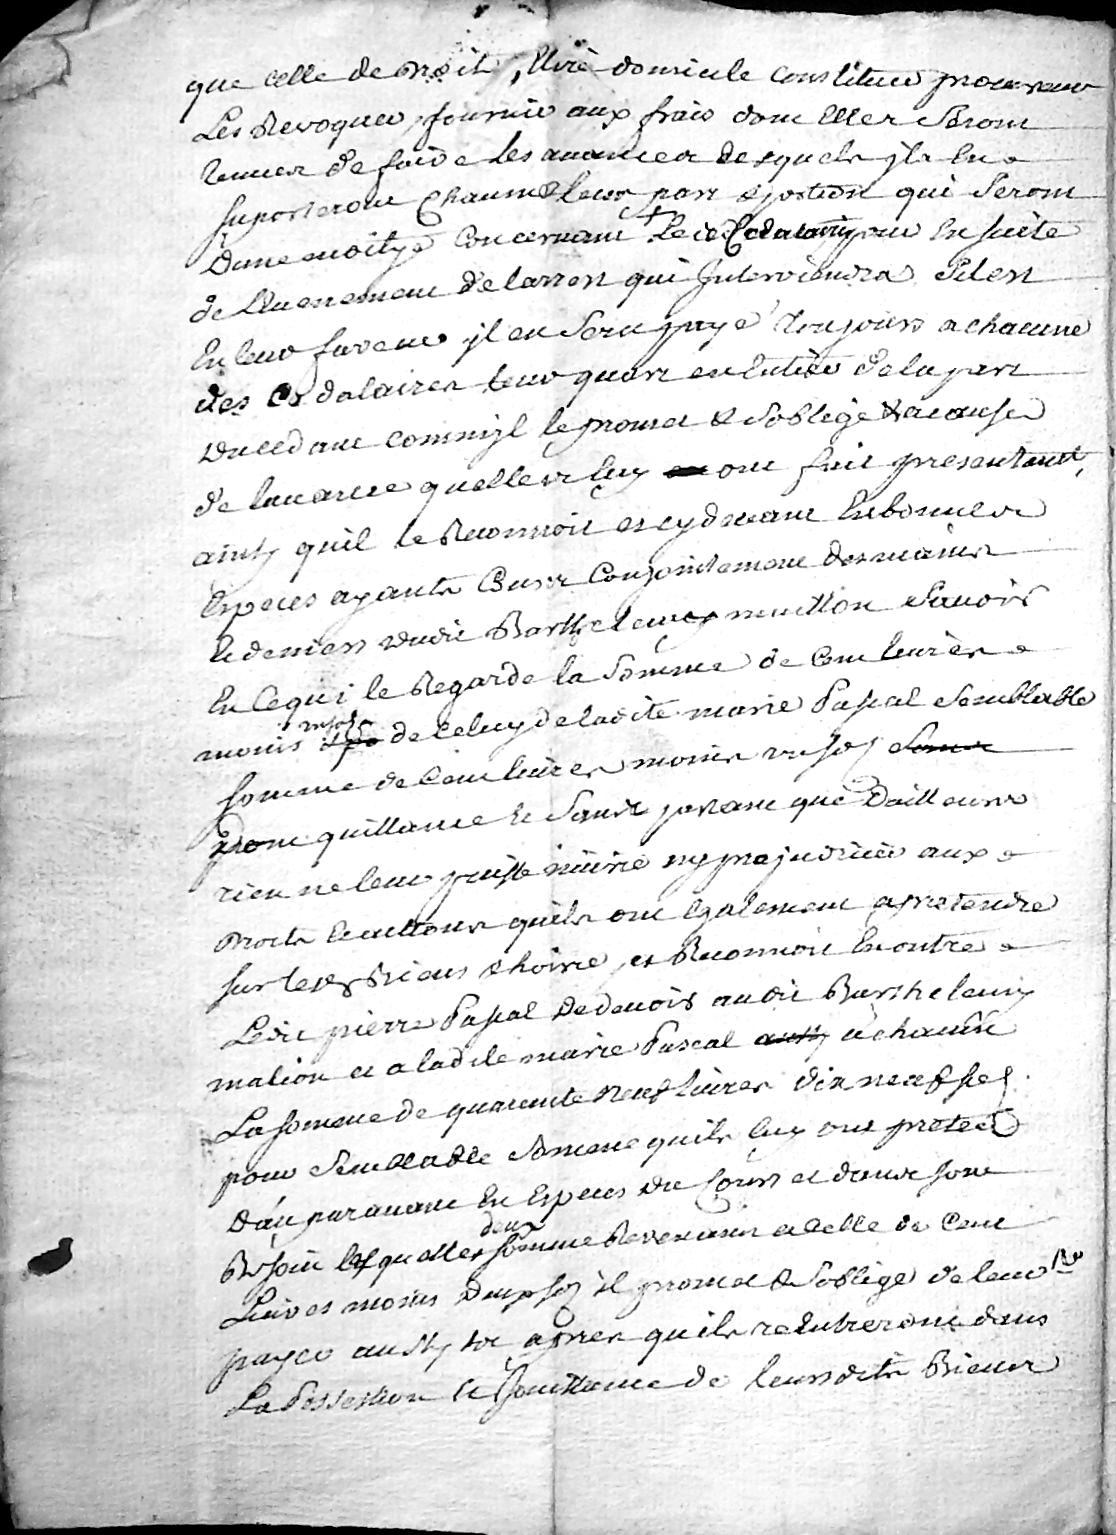 que celle de droit, Elire domicile constituer procureur
Les Revoquer, fournir aux frais dont Elles Seront
tenues de faire les avances desquels jls En
suporteront Chacun leur part & portion qui Seront
Dune moitye Concernant Le Cedataire ou En suite
de l'Evenement de larrest qui Interviendra Sil est
En leur faveur jl en Sera payé toujours a chacune
des Cedataires leur quart en Entier de la part
Du cedant comm'jl le promet & S'oblige a cause
de lavance quelles luy ont fait presentement,
ainsy quil le Reconnoit et cy devant En bonnes
Especes ayants Cours Conjointement des mains
& deniers Dudit Barthelemy malion Scavoir
En Ce qui le Regarde la Somme de Cent livres
moins un sol de Celuy de ladite marie Pascal Semblable
somme de Cent livres moins un sol
Dont quittance Et Sans partant que D'ailleurs
rien ne leur puisse nuire ny prejudicier aux
Droits Et actions quils ont Egalement a pretendre
sur lesds Biens & hoirie, et Reconnoit En outre
Ledit pierre Pascal De devoir audit Barthelemy
malion et a ladite marie Pascal a chacun
La somme de quarente Neuf livres dix neuf sol
pour Semblable Somme quils luy ont preté
D'auparavant En Especes du Cours et dans son
Besoin lesquelles deux somme Revenant a Celle de Cent
Livres moins Deux sol jl promet & S'oblige de leur
payer aussy tot apres quils r'entreront dans
La Possession Et Jouissance de leursdits Biens